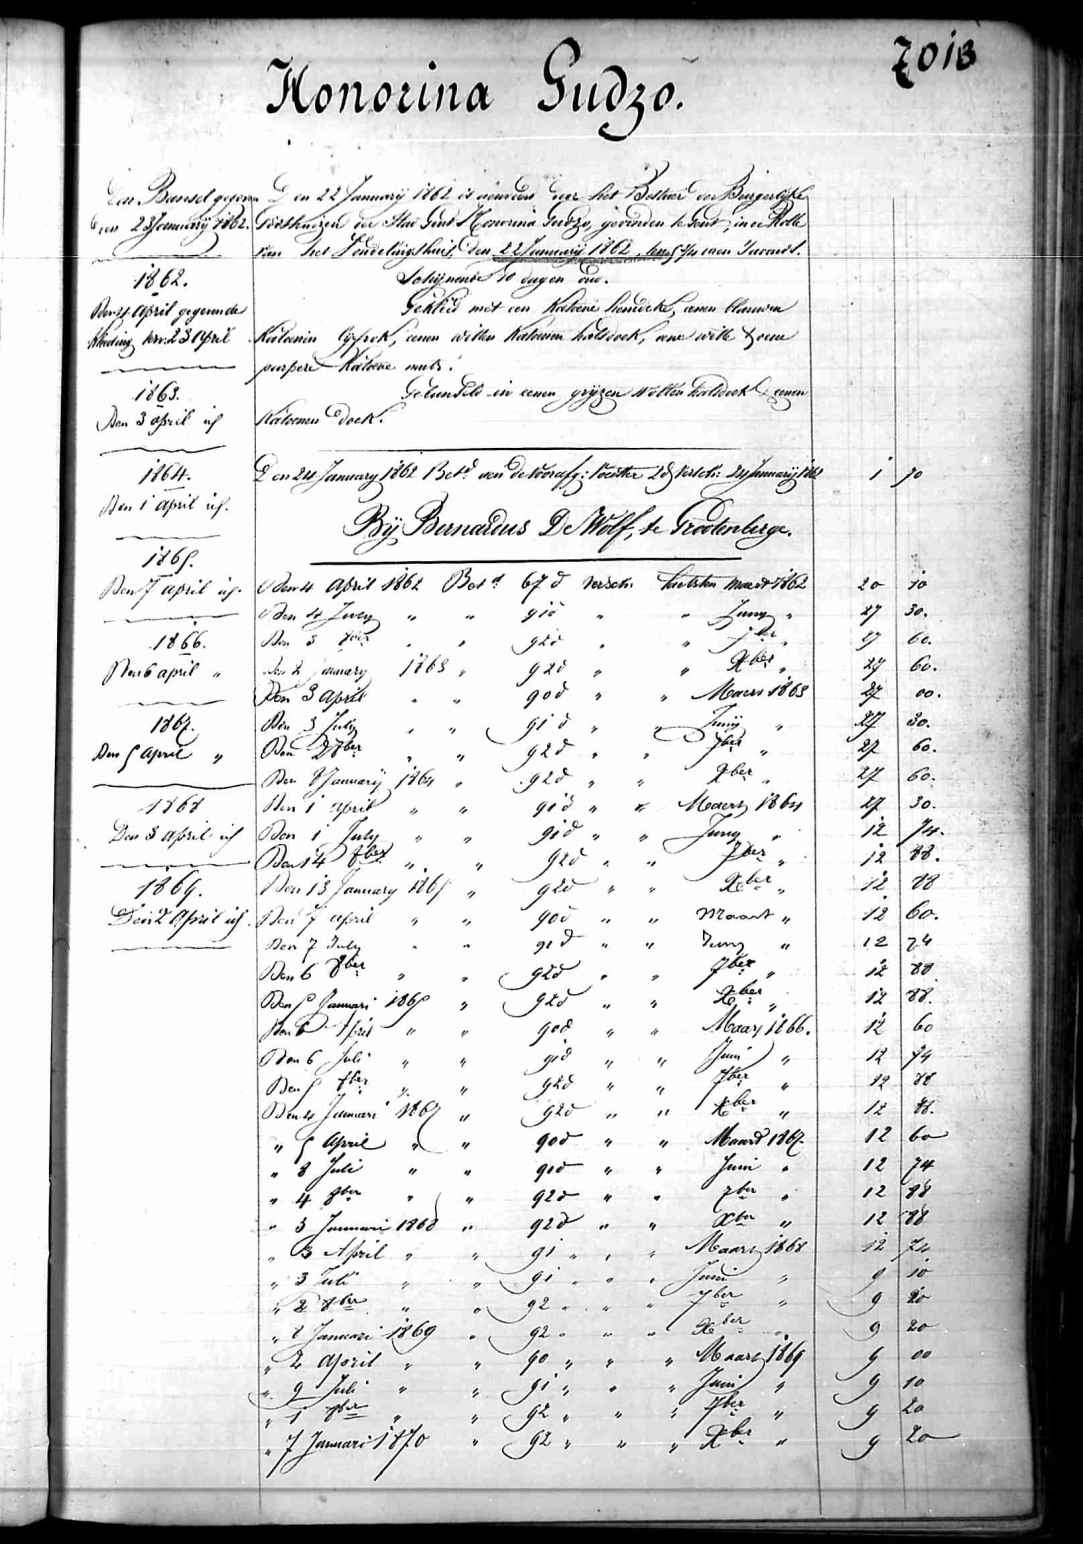 7013
Honorina Gudzo.
Den Bansel gegeven
den 23 January 1862.
1862.
Den 4 April gegeven de
kleeding verv. 23 April
1863.
Den 3 april id
1864.
Den 1 april id.
1865.
Den 7 april id.
1866.
Den 6 april "
1867.
Den 5 April "
1868
Den 3 april id
1869.
Den 2 April id.
Den 22 Januarij 1862 is aenveerd door het Bestier der Burgerlijke
Godshuizen der Stad Gent Honorina Gudzo, gevonden te Gent, in de Rolle
van het Vondelingshuis, den 22 Januarij 1862, ten 5 3/4 uren Savonds.
Schijnende 10 dagen oud.
Gekleed met een Katoene hemdeke, eenen blauwen
Katoenen , eenen witten Katoenen halsdoek, eene witte & eene
purpere Katoene muts.
Gebundeld in eenen grijzen wollen halsdoek & eenen
Katoenen doek.
Den 24 January 1862 Bet.d aen de voorafg: Voedster 2d versch: 24 Januarij 1862 1 70
Bij Bernardus De Wolf, te Grootenberge.
Den 4 April 1862 Bet.d 67 d versch. laetsten maart 1862 20 10
Den 4 July " " 91d " " Juny " 27 30.
Den 3 8ber " " 92d " " 7ber " 27 60.
Den 2 January 1863 " 92d " " Xber " 27 60.
Den 3 April " " 90d " " Maers 1863 27 00.
Den 3 July " " 91d " " Junij " 27 30.
Den 2 8ber " " 92d " " 7ber " 27 60.
Den 8 Januarij 1864 " 92d " " Xber " 27 60.
Den 1 April " " 91d " " Maers 1864 27 30.
Den 1 July " " 91d " " Juny " 12 74.
Den 14 8ber " " 92d " " 7ber " 12 88.
Den 13 January 1865 " 92d " " Xber " 12 88
Den 7 april " " 90d " " Maart " 12 60.
Den 7 July " " 91d " " Juny " 12 74
Den 6 8ber " " 92d " " 7ber " 12 88
Den 5 Januari 1865 " 92d " " Xber " 12 88.
Den 6 April " " 90d " " Maars 1866. 12 60
Den 6 Juli " " 91d " " Juni " 12 74
Den 5 8ber " " 92d " " 7ber " 12 88
Den 4 Januari 1867 " 92d " " Xber " 12 88.
" 5 April " " 90d " " Maard 1867. 12 60
" 8 Juli " " 91d " " Juni " 12 74
" 4 8ber " " 92d " " 7ber " 12 88
" 3 Januari 1868 " 92d " " Xber " 12 88
" 3 April " " 91 " " " Maars 1868 12 74
" 3 Juli " " 91 " " " Juni " 9 10
" 2 8ber " " 92 " " " 7ber " 9 20
" 8 Januari 1869 " 92 " " " Xber " 9 20
" 2 April " " 90 " " " Maart 1869 9 00
" 9 Juli " " 91 " " " Juni " 9 10
" 1 8ber " " 92 " " " 7ber " 9 20
" 7 Januari 1870 " 92 " " " Xber " 9 20